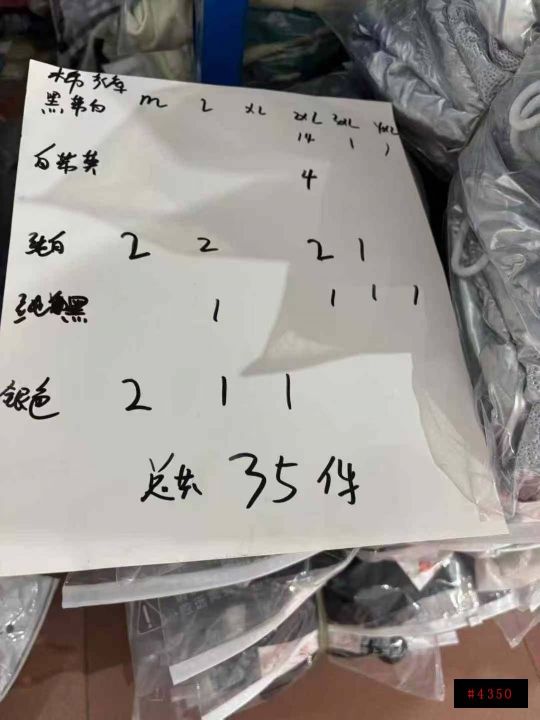 黑带白 M L XL 2XL 3XL 4XL
14 1 1
白带黑 4
纯白 2 2 2 1
纯黑 1 1 1 1
银色 2 1 1
总共 35 件
#4350